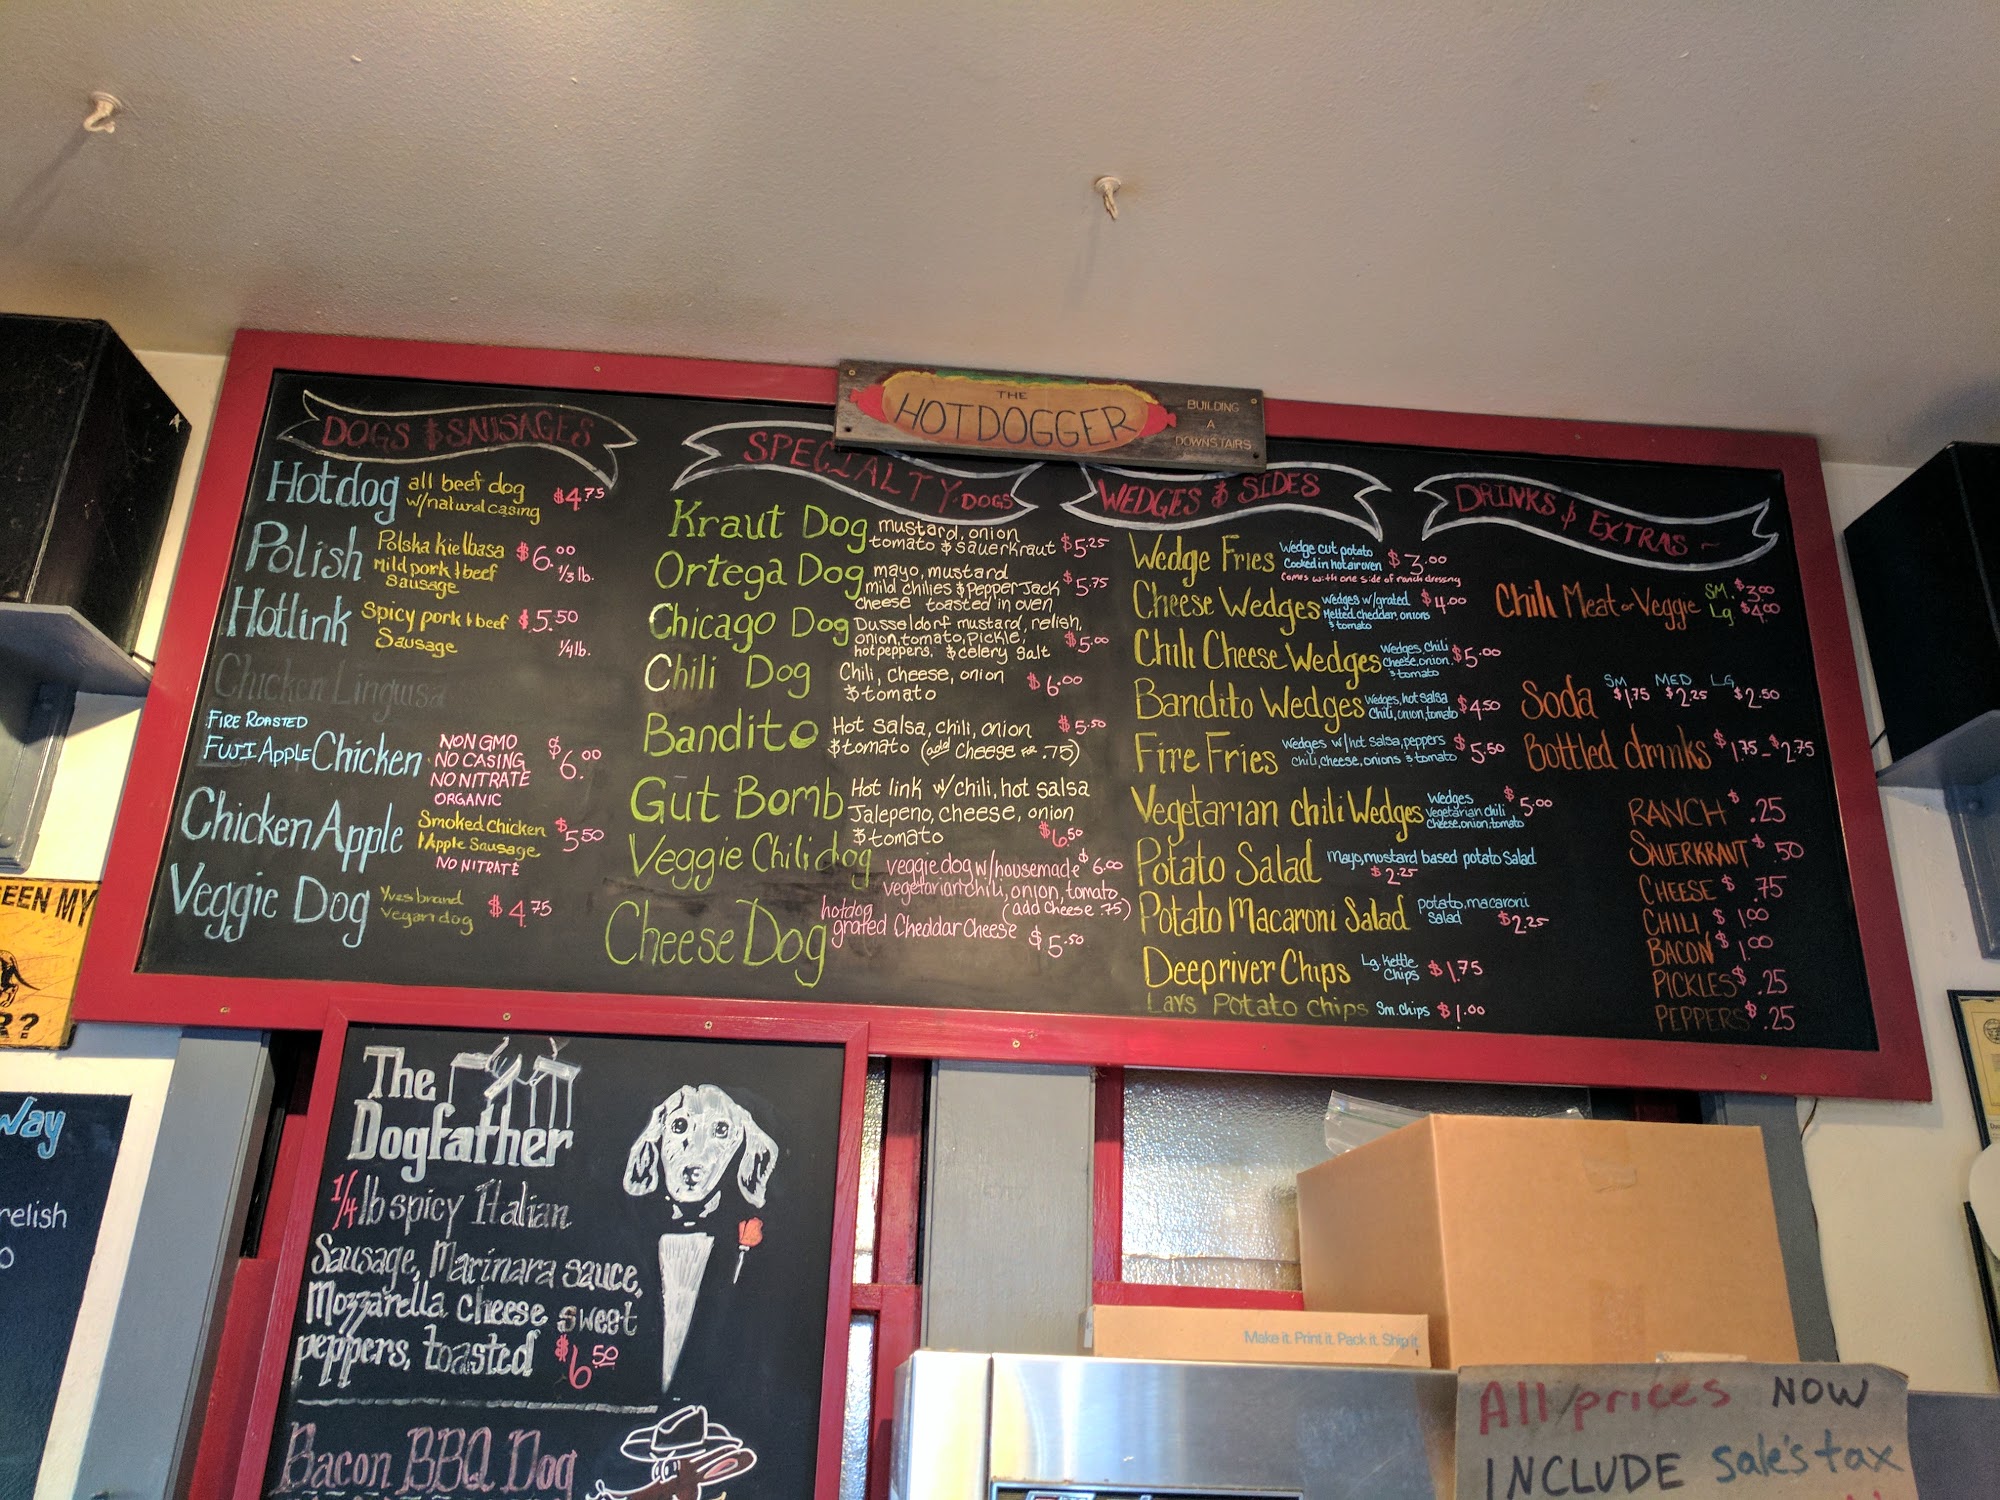 THE
HOTDOGGER
BUILDING
A
DOWNSTAIRS
DOGS & SAUSAGES
Hotdog all beef dog $4.75
w/natural casing
Polish Polska kielbasa $6.00
Mild pork & beef 1/3 lb.
Sausage
Hotlink Spicy pork & beef $5.50
Sausage 1/4 lb.
Chicken Linguisa
FIRE ROASTED
FUJI APPLE Chicken NON GMO $6.00
NO CASING
NO NITRATE
ORGANIC
Chicken Apple Smoked Chicken $5.50
& Apple Sausage
NO NITRATE
Veggie Dog Yves brand $4.75
Vegan dog
SPECIALTY DOGS
Kraut Dog mustard, onion
tomato & sauerkraut $5.25
Ortega Dog mayo, mustard $5.75
mild chilies & Pepper Jack
cheese toasted in oven
Chicago Dog Dusseldorf mustard, relish,
onion, tomato, pickle, $5.00
hot peppers, & celery salt
Chili Dog Chili, cheese, onion $6.00
& tomato
Bandito Hot salsa, chili, onion $5.50
& tomato (add cheese for .75)
Gut Bomb Hot link w/ chili, hot salsa
Jalepeno, cheese, onion
& tomato $6.50
Veggie Chili dog veggie dog w/housemade $6.00
vegetarian chili, onion, tomato
(add cheese .75)
Cheese Dog hotdog
grated Cheddar Cheese $5.50
WEDGES & SIDES
Wedge Fries Wedge cut potato $3.00
Cooked in hot air oven
Comes with one side of ranch dressing
Cheese Wedges Wedges w/grated $4.00
Melted cheddar, onions
& tomato
Chili Cheese Wedges Wedges, chili $5.00
Cheese, onion,
& tomato
Bandito Wedges Wedges, hot salsa $4.50
Chili, onion, tomato
Fire Fries Wedges w/hot salsa, peppers $5.50
chili, cheese, onions & tomato
Vegetarian chili Wedges Wedges $5.00
Vegetarian chili
Cheese, onion, tomato
Potato Salad mayo, mustard based potato salad
$2.25
Potato Macaroni Salad potato, macaroni
salad $2.25
Deepriver Chips Lg. Kettle $1.75
Chips
Lays Potato Chips Sm. chips $1.00
DRINKS & EXTRAS ~
Chili Meat or Veggie SM. $3.00
Lg $4.00
SM MED LG
Soda $1.75 $2.25 $2.50
Bottled drinks $1.75 - $2.75
RANCH $.25
SAUERKRAUT $.50
CHEESE $.75
CHILI $1.00
BACON $1.00
PICKLES $.25
PEPPERS $.25
The
Dogfather
1/4 lb spicy Italian
Sausage, Marinara sauce,
Mozzarella cheese sweet
peppers, toasted $6.50
Bacon BBQ Dog
EEN MY
R?
Way
relish
Make it. Print it. Pack it. Ship it.
All prices NOW
INCLUDE sale's tax